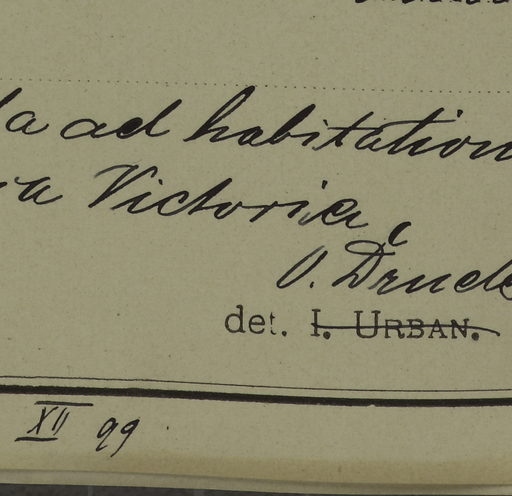 ad habitation
Victoria,
O. Drude
det. I. URBAN.
XII 99